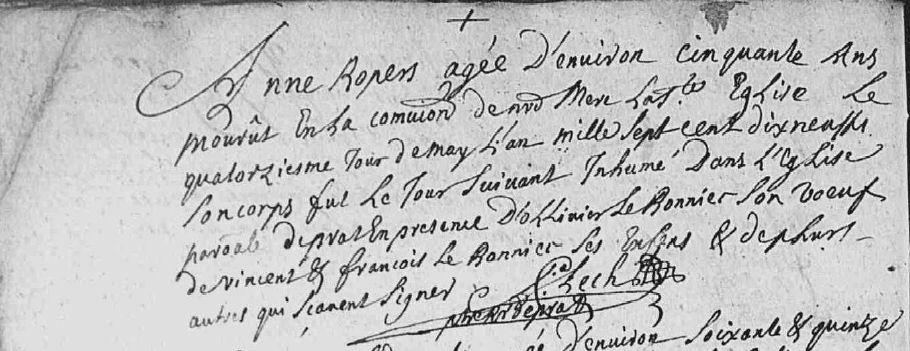 Anne Ropers agée D'enuiron cinquante Ans
mourût En La comuion de nrẽ Mere La Ste EgLise Le
quatorziesme Jour de may L'an mille sept cent dix neuf
son corps fut Le Jour suivant Inhumé Dans L'EgLise
paroãle de prat En presence D'oLLivier Le Bonniec son voeuf
de vincent & francois Le Bonniec ses Enfens & de plusrs
autres qui scavent signer
d'enuiron soixante & quinze